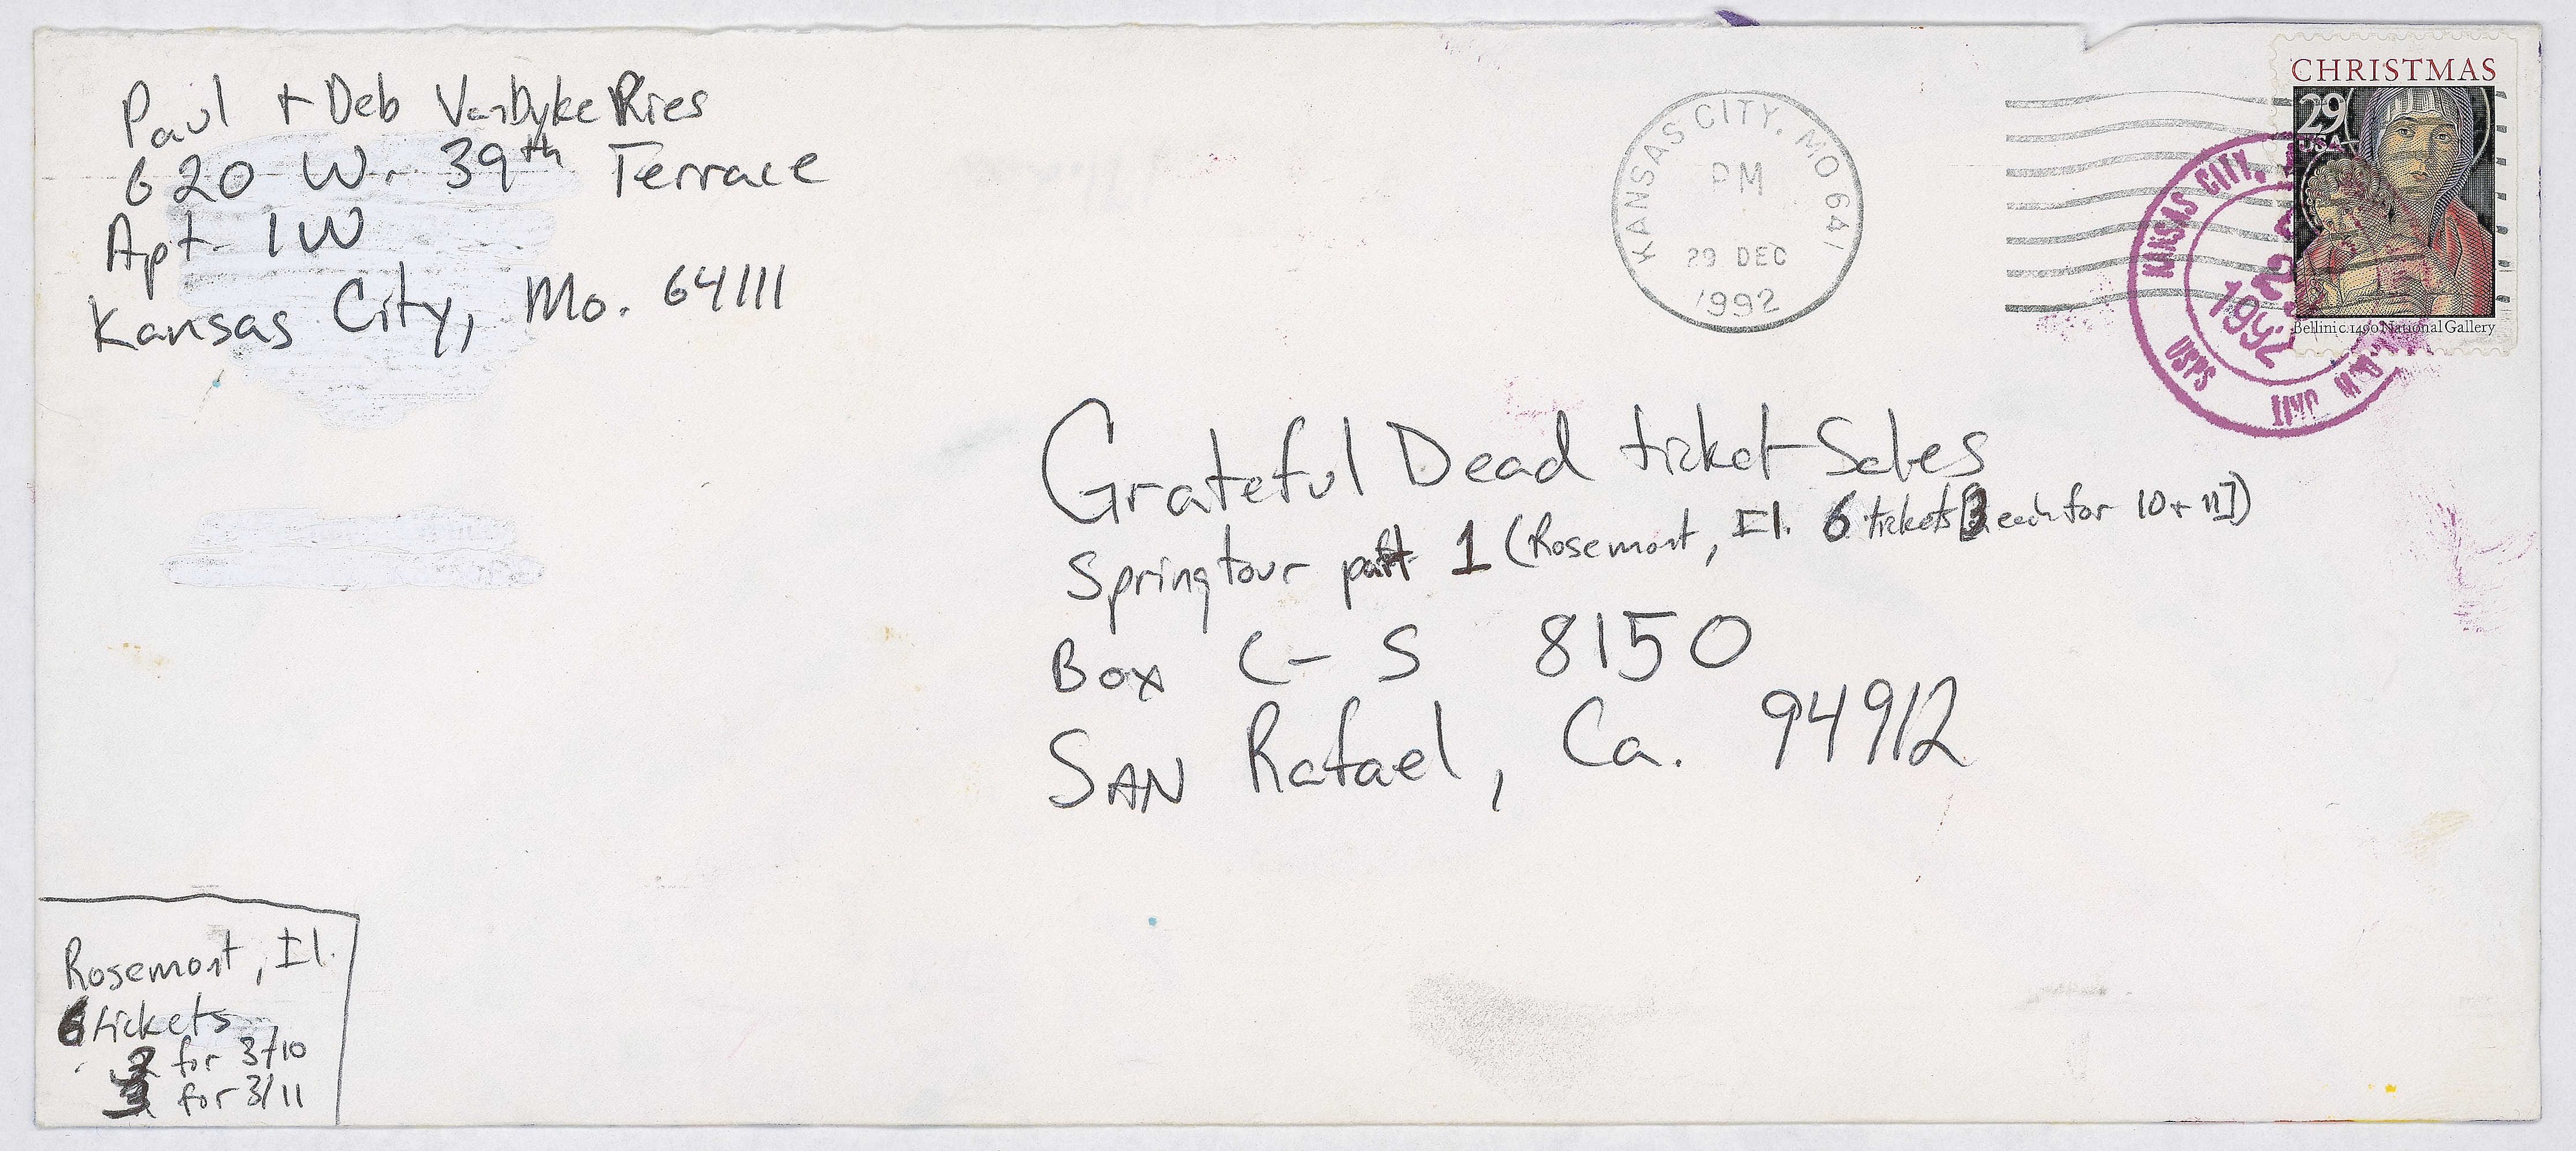 Paul + Deb VanDyke Ries
620 W. 39th Terrace
Apt 1W
Kansas City, Mo. 64111
KANSAS CITY, MO 641
PM
29 DEC
1992
CHRISTMAS
29
USA
Bellini c.1490 National Gallery
KANSAS CITY,
1992
USPS
UNIT
Grateful Dead ticket Sales
Spring tour part 1 (Rosemont, Il. 6 tickets [3 each for 10 + 11])
Box C-S 8150
SAN Rafael, Ca. 94912
Rosemont, Il.
6 tickets
3 for 3/10
3 for 3/11